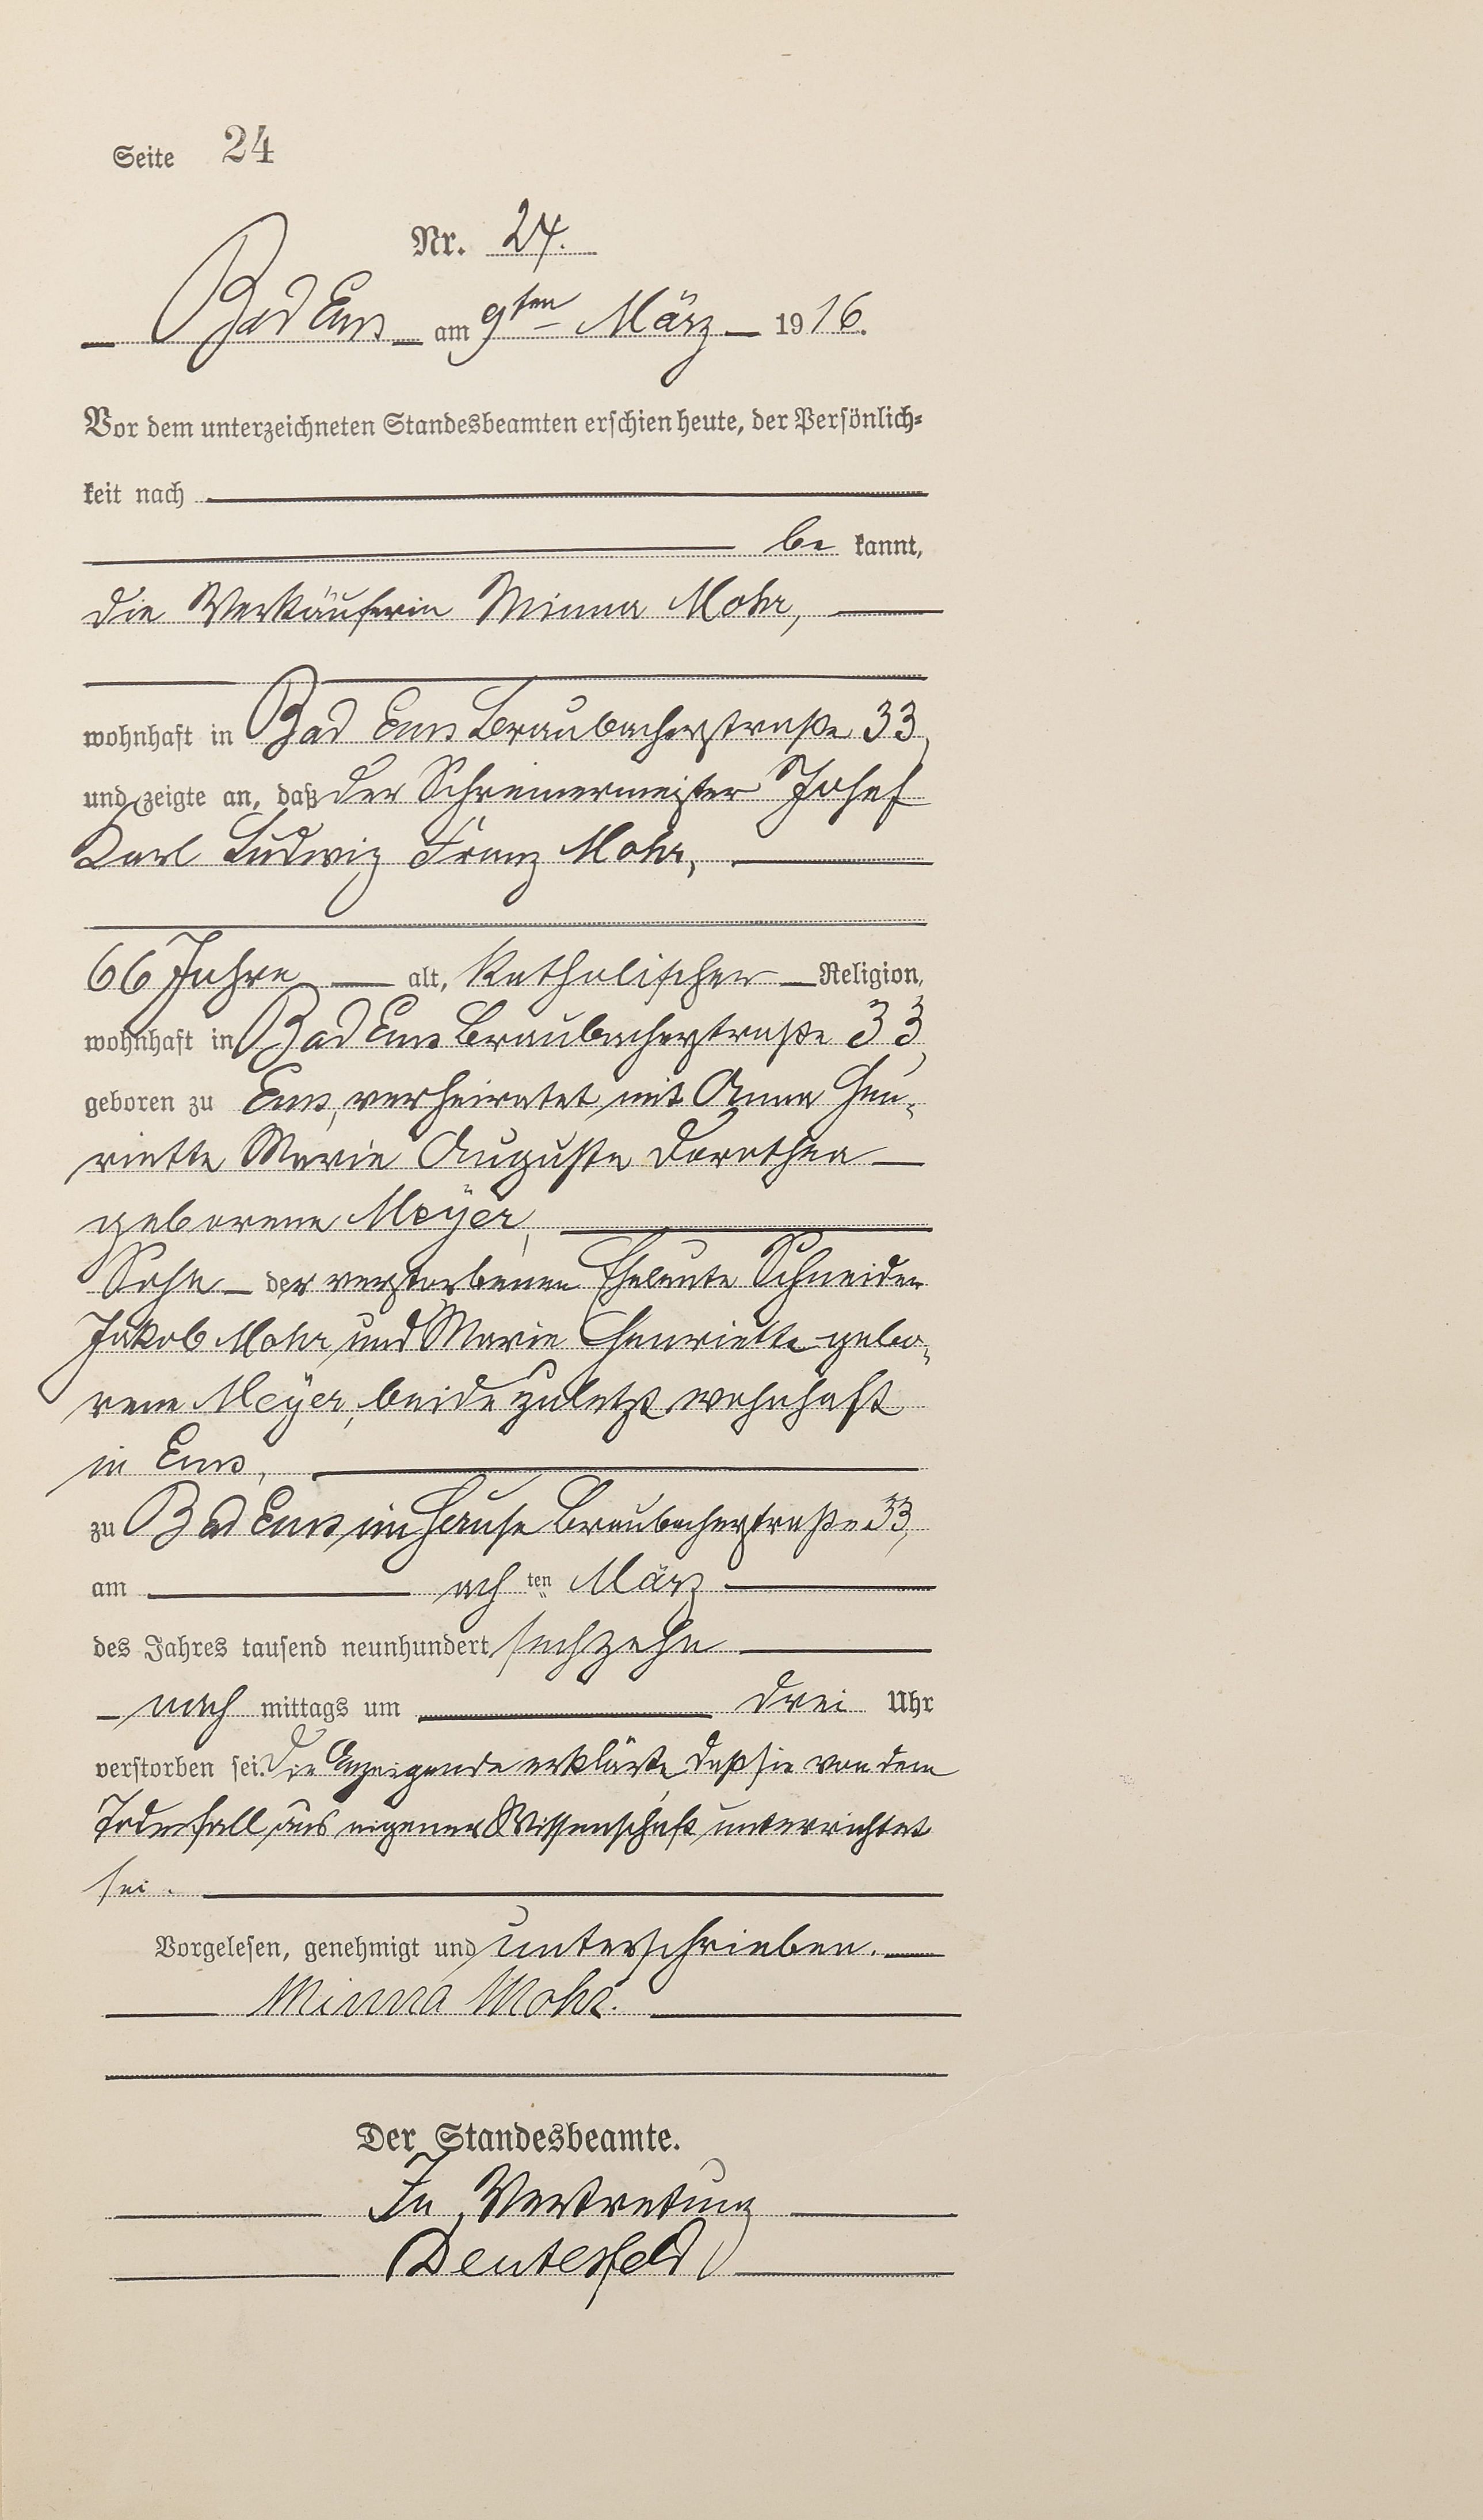 Seite 24
Nr. 24.
Bad Ems am 9ten März 1916.
Vor dem unterzeichneten Standesbeamten erschien heute, der Persönlich=
keit nach
be kannt,
die Verkäuferin Minna Mohr,
wohnhaft in Bad Ems Braubacherstraße 33,
und zeigte an, daß der Schreinermeister Josef
Karl Ludwig Franz Mohr,
66 Jahre alt, katholischer Religion,
wohnhaft in Bad Ems Braubacherstraße 33,
geboren zu Ems, verheiratet mit Anna Hen=
riette Marie Auguste Dorothea
geborene Meÿer,
Sohn der verstorbenen Eheleute Schneider
Jakob Mohr und Marie Henriette gebo=
rene Meÿer, beide zuletzt wohnhaft
in Ems,
zu Bad Ems im Hause Braubacherstraße 33,
am achten März
des Jahres tausend neunhundert sechzehn
nach mittags um drei Uhr
verstorben sei. Die Anzeigende erklärte, daß sie von dem
Todesfall aus eigener Wissenschaft unterrichtet
sei.
Vorgelesen, genehmigt und unterschrieben.
Minna Mohr.
Der Standesbeamte.
In Vertretung
Deutesfeld